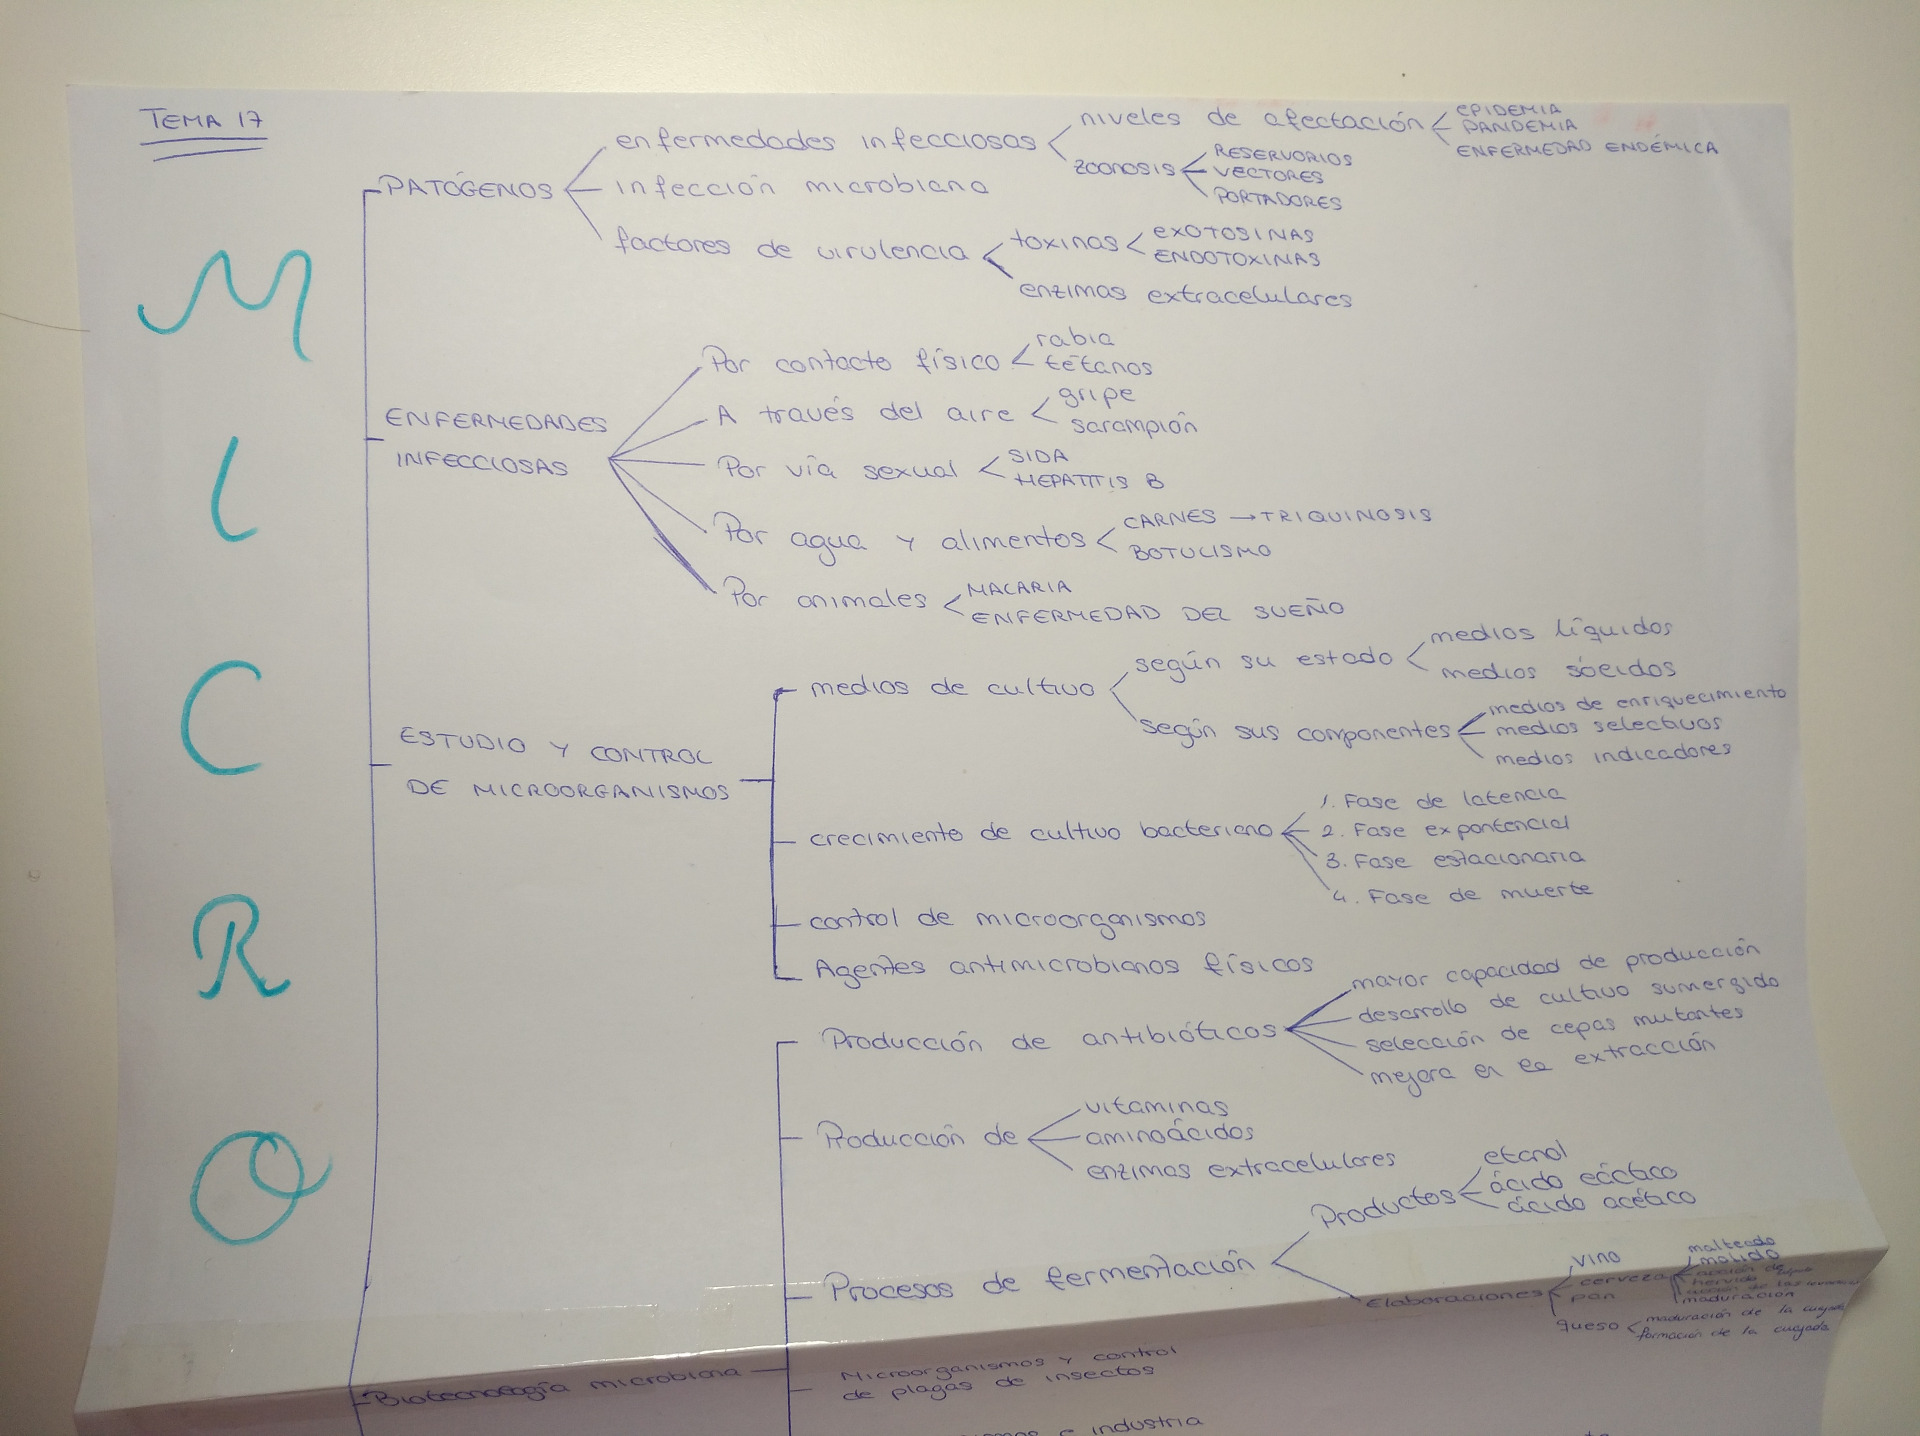 TEMA 17
MICRO
PATÓGENOS
enfermedades infecciosas
niveles de afectación
EPIDEMIA
PANDEMIA
ENFERMEDAD ENDÉMICA
zoonosis
RESERVORIOS
VECTORES
PORTADORES
infección microbiana
factores de virulencia
toxinas
EXOTOSINAS
ENDOTOXINAS
enzimas extracelulares
ENFERMEDADES
INFECCIOSAS
Por contacto físico
rabia
tétanos
A través del aire
gripe
sarampión
Por vía sexual
SIDA
HEPATITIS B
Por agua y alimentos
CARNES → TRIQUINOSIS
BOTULISMO
Por animales
MALARIA
ENFERMEDAD DEL SUEÑO
ESTUDIO Y CONTROL
DE MICROORGANISMOS
medios de cultivo
según su estado
medios líquidos
medios sólidos
según sus componentes
medios de enriquecimiento
medios selectivos
medios indicadores
crecimiento de cultivo bacteriano
1. Fase de latencia
2. Fase exponencial
3. Fase estacionaria
4. Fase de muerte
control de microorganismos
Agentes antimicrobianos físicos
Biotecnología microbiana
Producción de antibióticos
mayor capacidad de producción
desarrollo de cultivo sumergido
selección de cepas mutantes
mejora en la extracción
Producción de
vitaminas
aminoácidos
enzimas extracelulares
Procesos de fermentación
Productos
etanol
ácido láctico
ácido acético
Elaboraciones
vino
cerveza
malteado
molido
hervido
maduración
pan
queso
maduración de la cuajada
formación de la cuajada
Microorganismos y control
de plagas de insectos
e industria